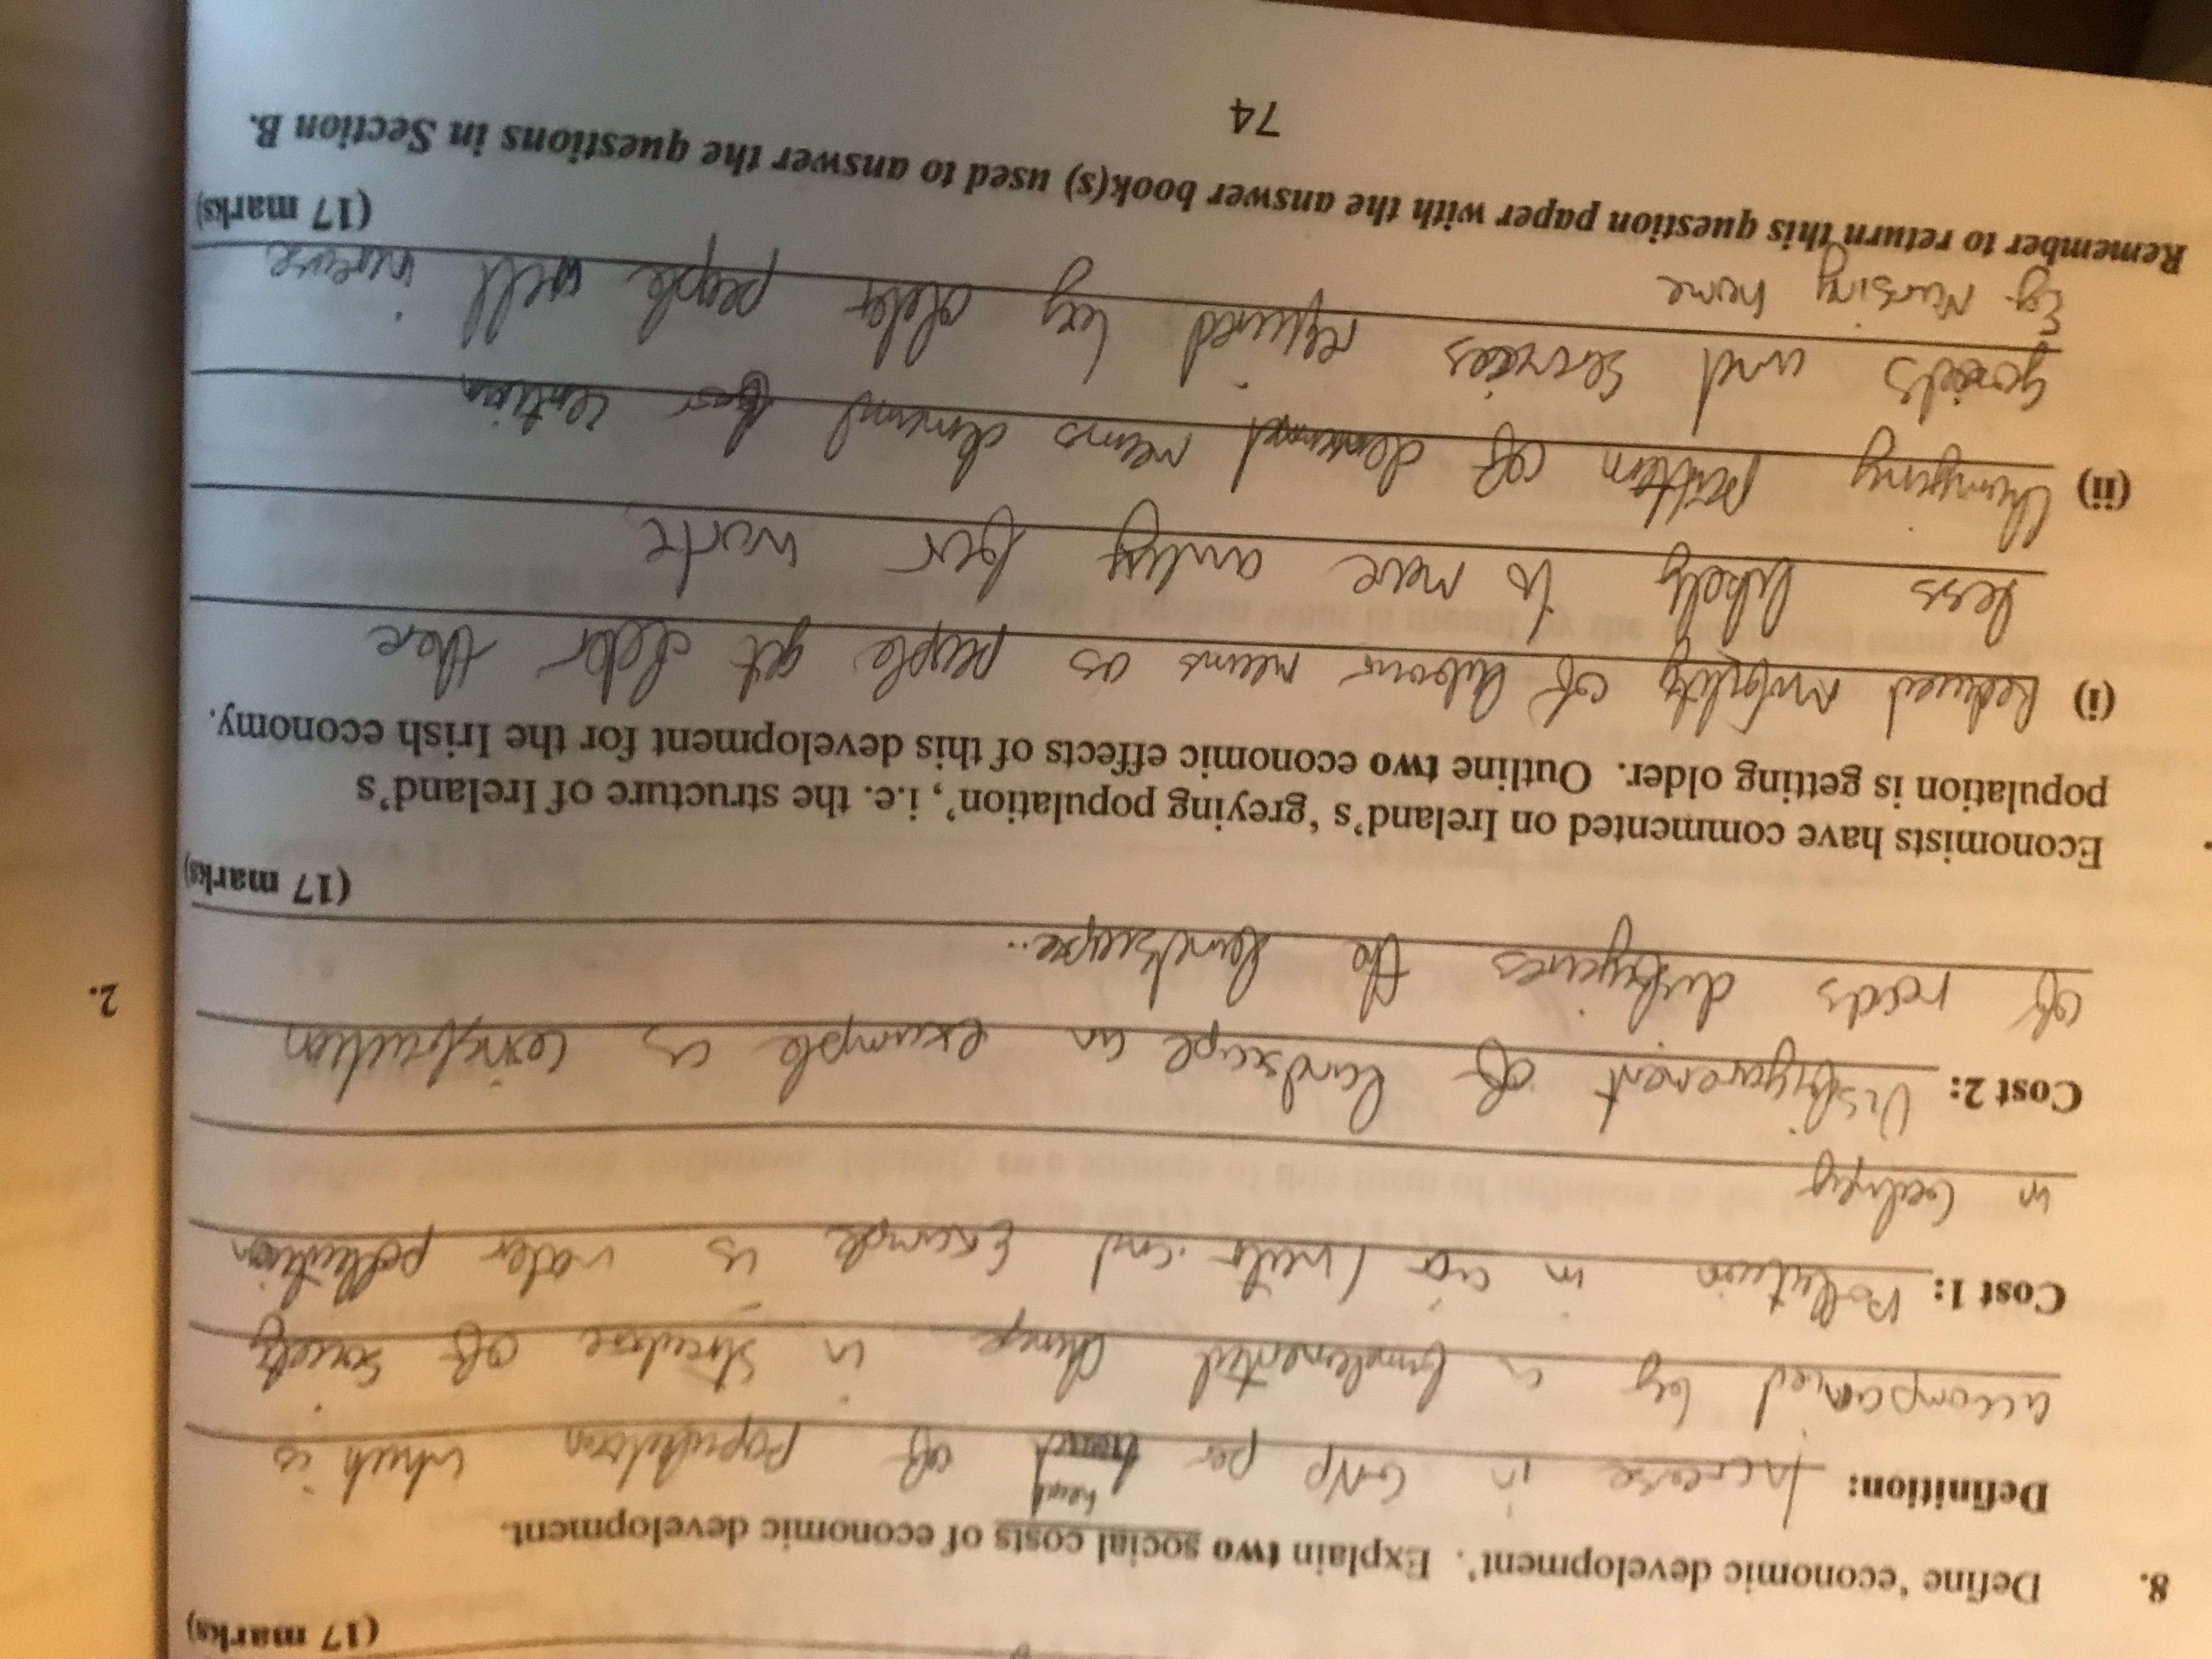 (17 marks)
8. Define ‘economic development’. Explain two social costs of economic development.
Definition: Increase in GNP per head of population which is
accompanied by a fundemental change in structure of society
Cost 1: Pollution in air / water and Example is water pollution
in Galway
Cost 2: Disfigurement of landscape an example is construction
of roads disfigures the landscape..
(17 marks)
2.
Economists have commented on Ireland’s ‘greying population’, i.e. the structure of Ireland’s
population is getting older. Outline two economic effects of this development for the Irish economy.
(i) Reduced mobility of labour means as people get older there
less likely to move away for work
(ii) Changing pattern of demand means demand for certian
goods and services required by older people will increase
Eg. Nursing home
(17 marks)
Remember to return this question paper with the answer book(s) used to answer the questions in Section B.
74